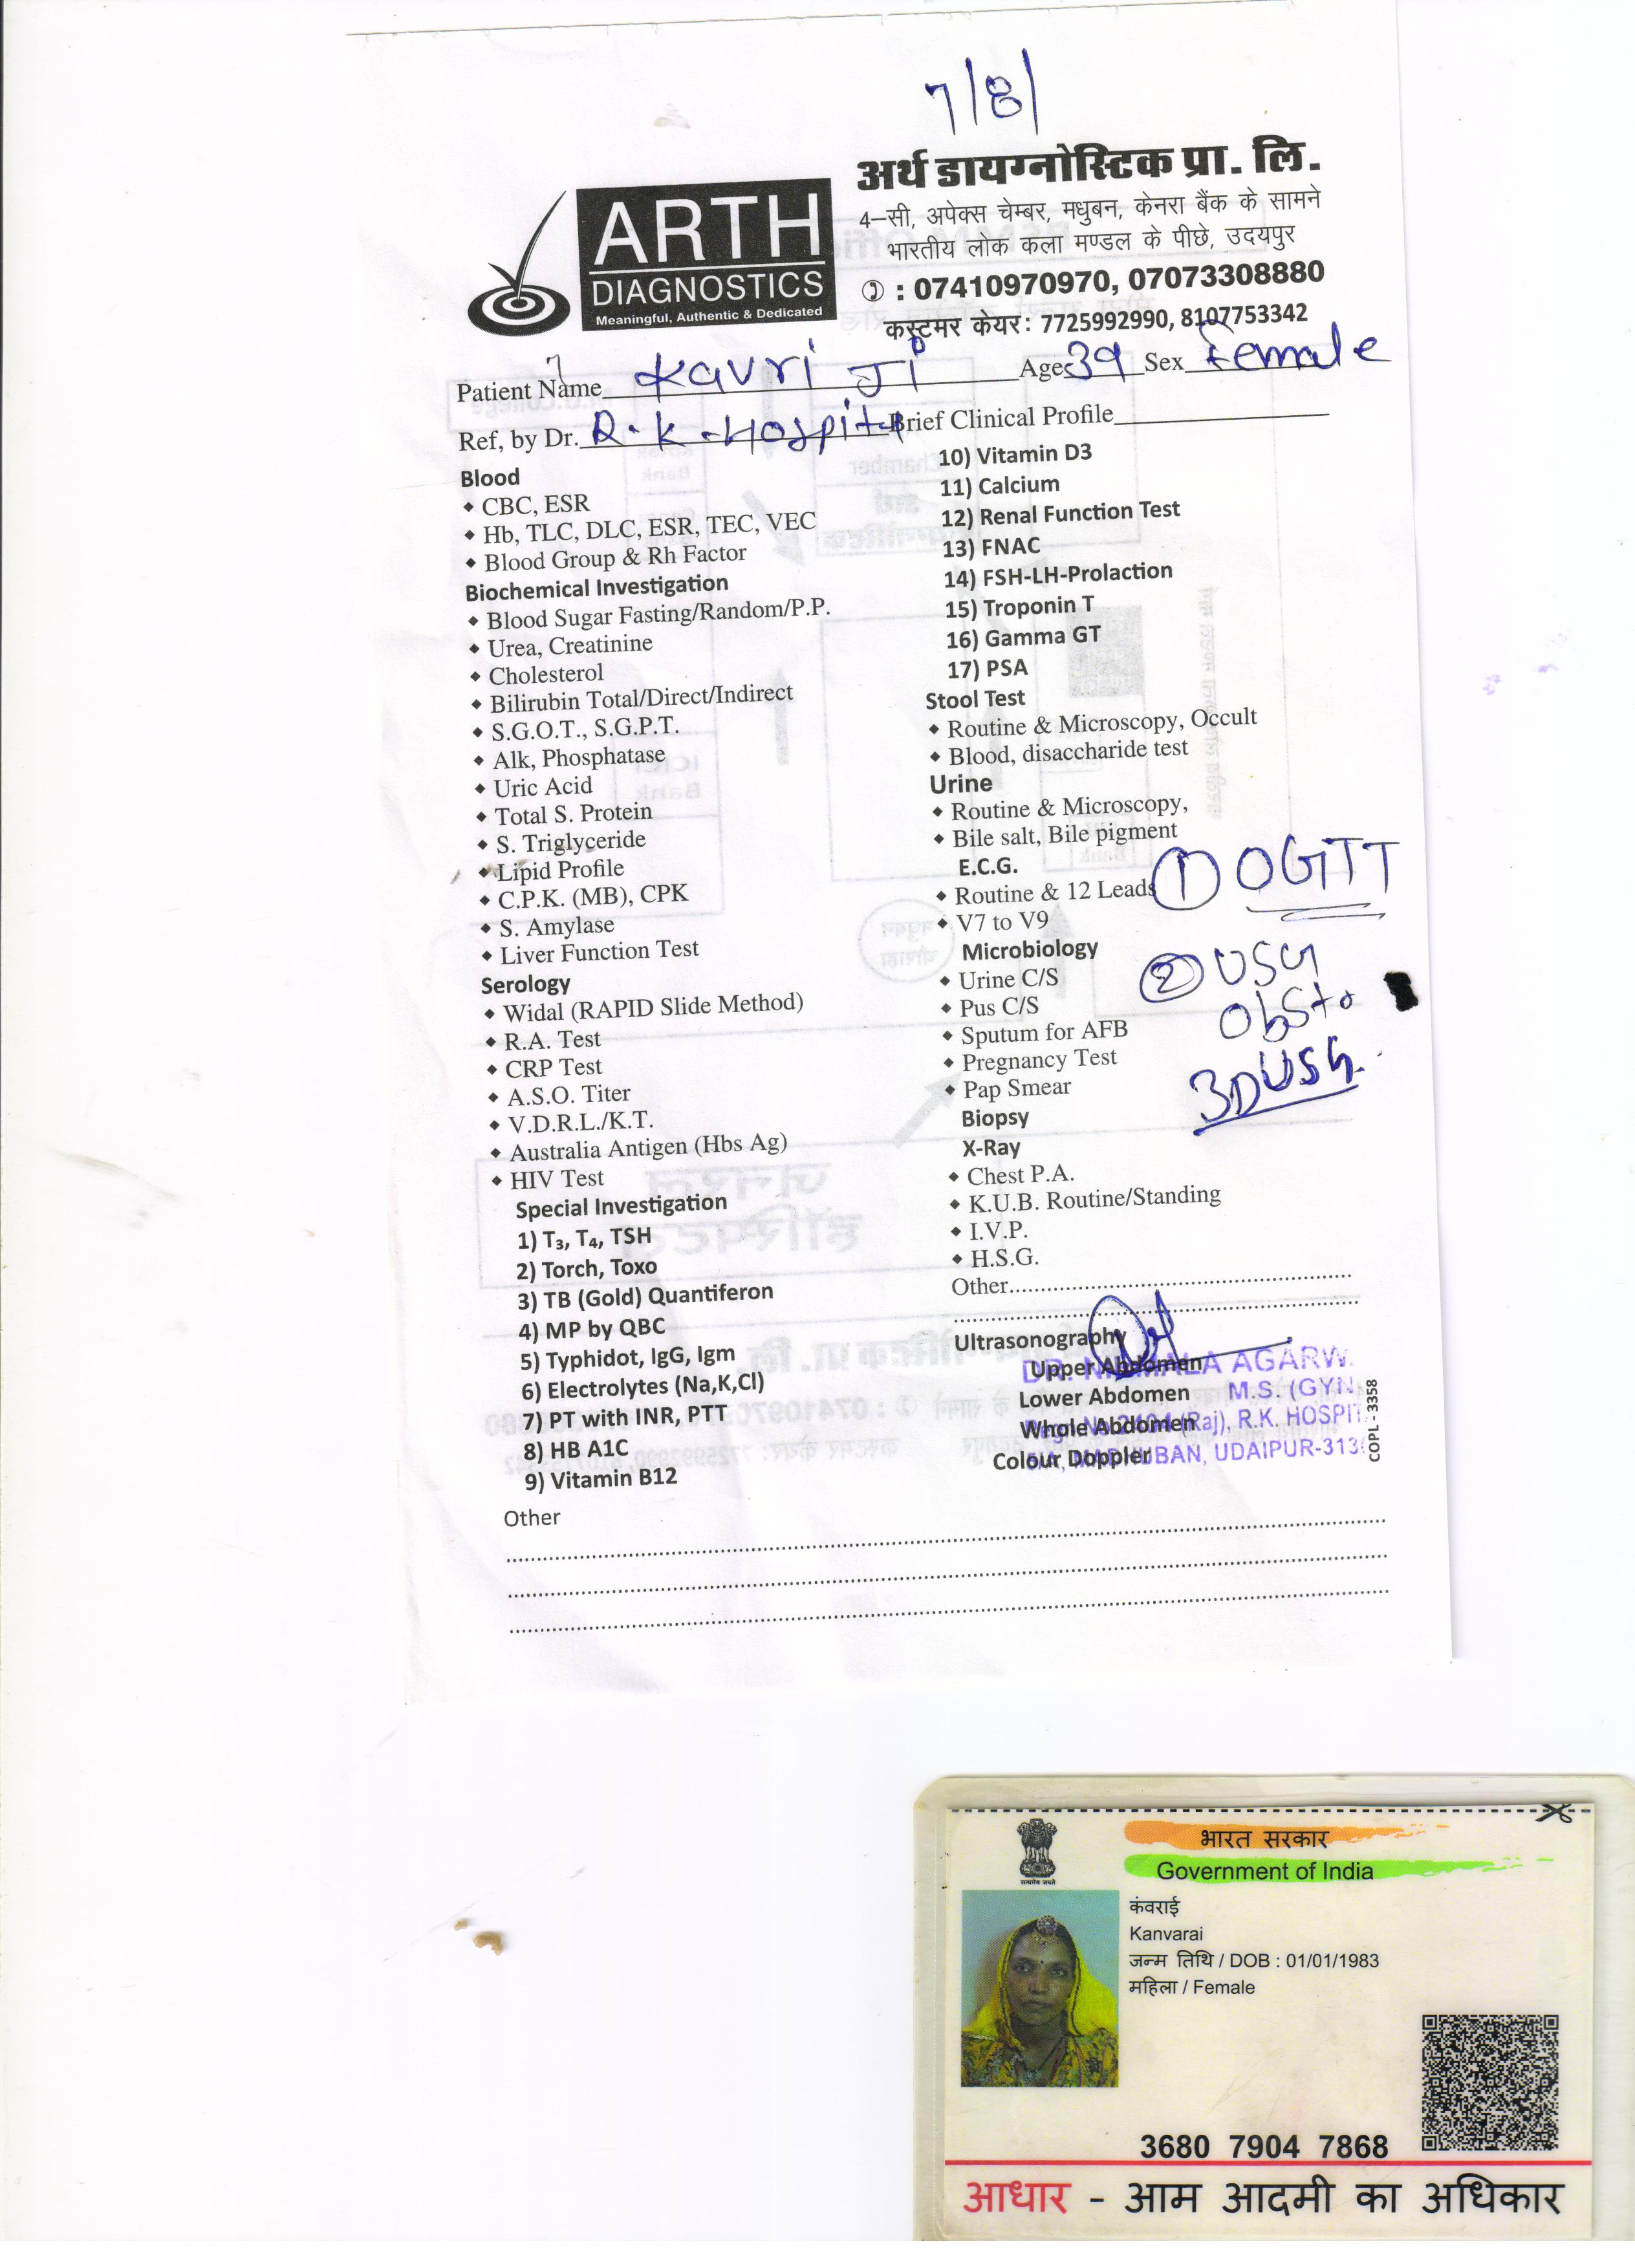 7/8/
अर्थ डायग्नोस्टिक प्रा. लि.
ARTH
DIAGNOSTICS
Meaningful, Authentic & Dedicated
4–सी, अपेक्स चेम्बर, मधुबन, केनरा बैंक के सामने
भारतीय लोक कला मण्डल के पीछे, उदयपुर
: 07410970970, 07073308880
कस्टमर केयर: 7725992990, 8107753342
Patient Name Kavri Ji Age 39 Sex Female
Ref, by Dr. R.K. Hospital Brief Clinical Profile
Blood
CBC, ESR
Hb, TLC, DLC, ESR, TEC, VEC
Blood Group & Rh Factor
Biochemical Investigation
Blood Sugar Fasting/Random/P.P.
Urea, Creatinine
Cholesterol
Bilirubin Total/Direct/Indirect
S.G.O.T., S.G.P.T.
Alk, Phosphatase
Uric Acid
Total S. Protein
S. Triglyceride
Lipid Profile
C.P.K. (MB), CPK
S. Amylase
Liver Function Test
Serology
Widal (RAPID Slide Method)
R.A. Test
CRP Test
A.S.O. Titer
V.D.R.L./K.T.
Australia Antigen (Hbs Ag)
HIV Test
Special Investigation
1) T₃, T₄, TSH
2) Torch, Toxo
3) TB (Gold) Quantiferon
4) MP by QBC
5) Typhidot, IgG, Igm
6) Electrolytes (Na,K,Cl)
7) PT with INR, PTT
8) HB A1C
9) Vitamin B12
10) Vitamin D3
11) Calcium
12) Renal Function Test
13) FNAC
14) FSH-LH-Prolaction
15) Troponin T
16) Gamma GT
17) PSA
Stool Test
Routine & Microscopy, Occult
Blood, disaccharide test
Urine
Routine & Microscopy,
Bile salt, Bile pigment
E.C.G.
Routine & 12 Leads
V7 to V9
Microbiology
Urine C/S
Pus C/S
Sputum for AFB
Pregnancy Test
Pap Smear
Biopsy
X-Ray
Chest P.A.
K.U.B. Routine/Standing
I.V.P.
H.S.G.
Other
① OGTT
② USG
Obstr
3D USG.
Ultrasonography
Upper Abdomen
Lower Abdomen
Whole Abdomen
Colour Doppler
AGARW
M.S. (GYN
(Raj), R.K. HOSPI
UDAIPUR-313
COPL - 3358
Other
भारत सरकार
Government of India
सत्यमेव जयते
कंवराई
Kanvarai
जन्म तिथि / DOB : 01/01/1983
महिला / Female
3680 7904 7868
आधार - आम आदमी का अधिकार